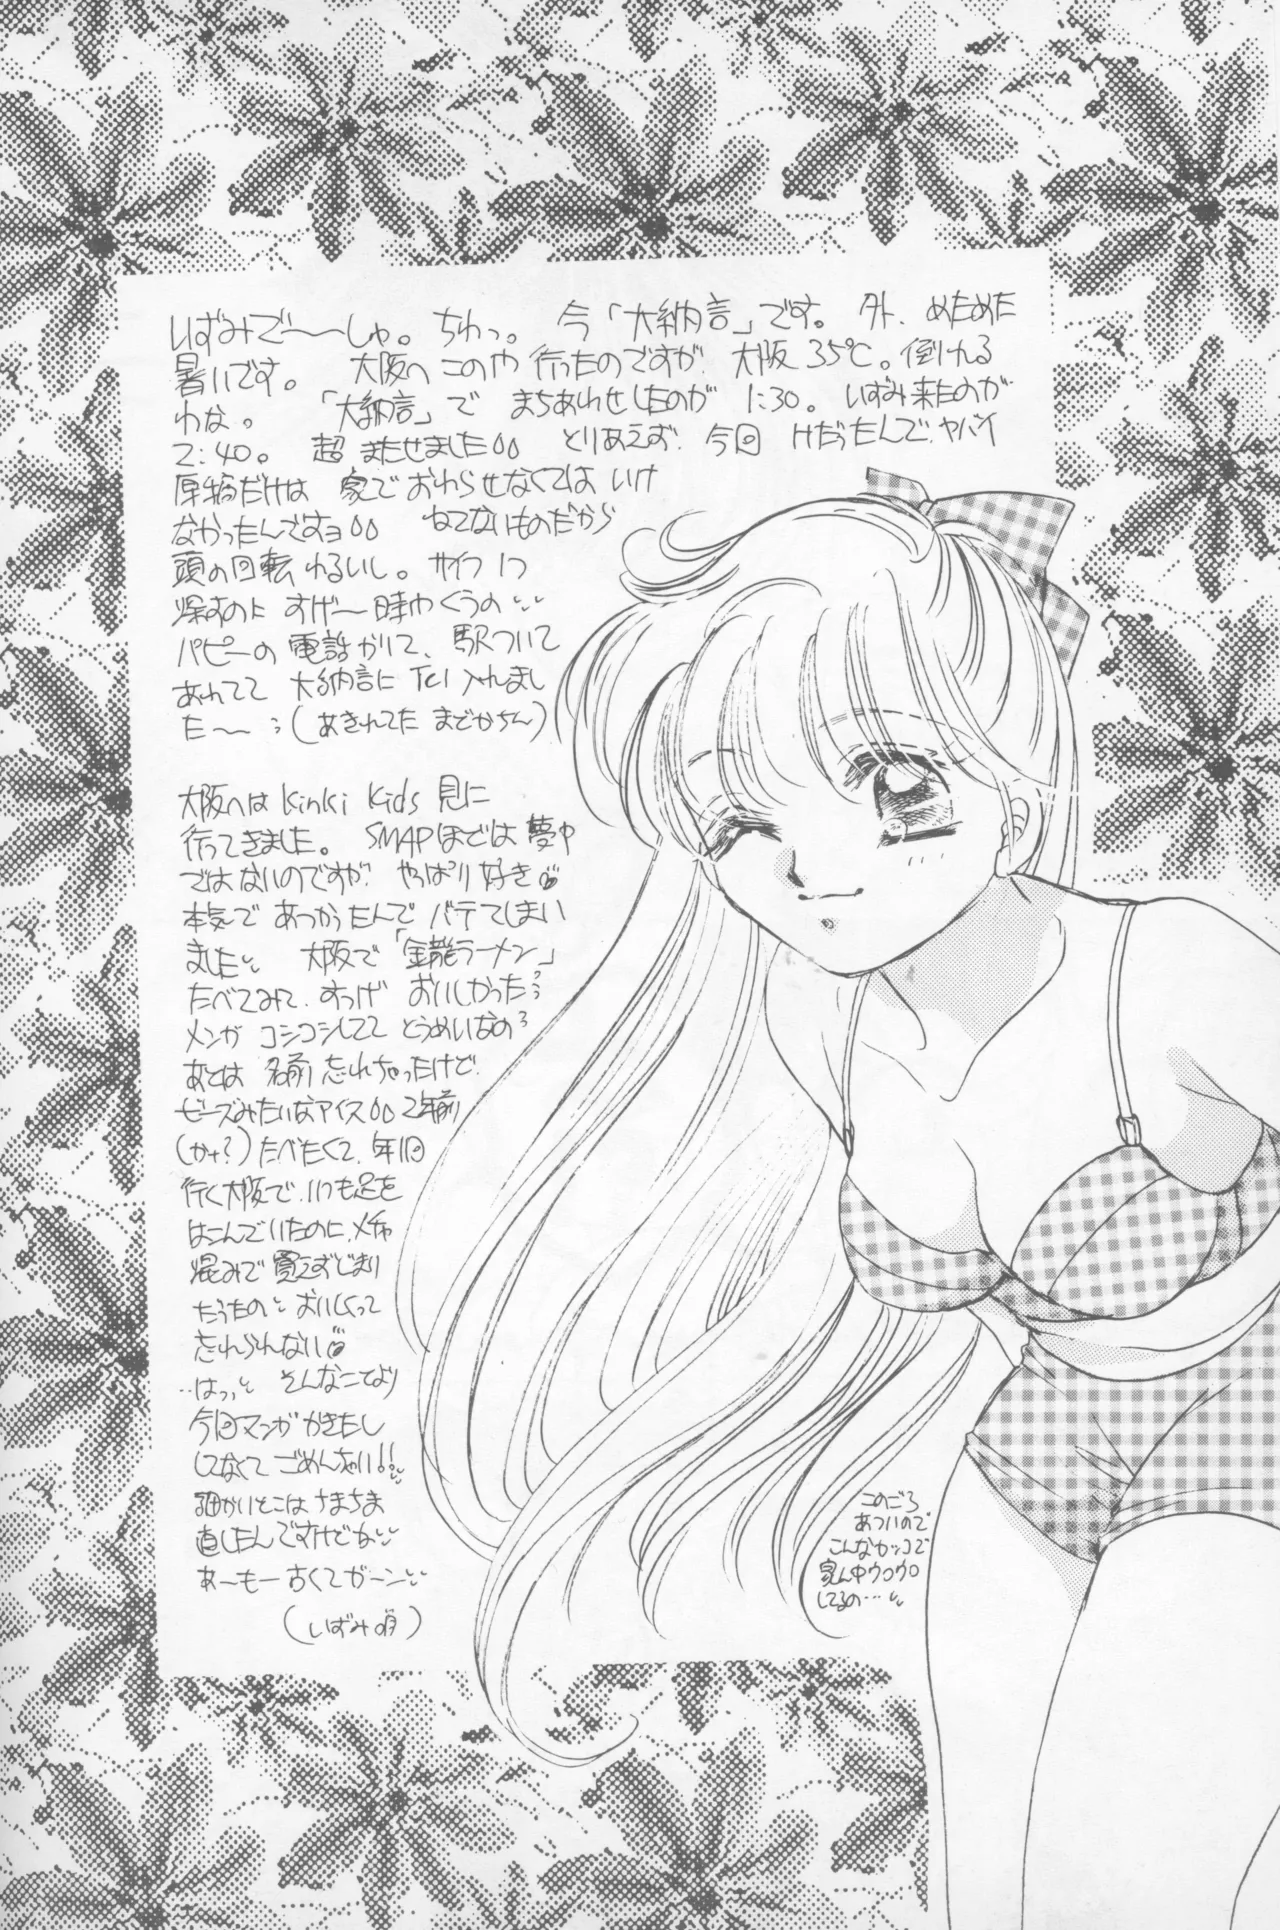 いずみで〜〜しゅ。ちわっ。今「大納言」です。外、めためた
暑いです。大阪へこのや行ったのですが、大阪35℃。倒れる
わな。「大納言」でまちあわせしたのが1:30。いずみ来たのが
2:40。超またせました。とりあえず、今回 だったんで、ヤバイ
原稿だけは家でおわらせなくてはいけ
なかったんですヨ ねてないものだから
頭の回転わるいし。サイフ1つ
帰すのにすげ〜時間くうの
パピーの電話かりて、駅ついて
あわてて大納言にTel入れまし
た〜〜(あきれてたまどかちん)
大阪へはKinki Kids見に
行ってきました。SMAPほどは夢中
ではないのですが、やっぱり好き
本気であつかったんでバテてしまい
ました 大阪で「金龍ラーメン」
たべてみて、すっげおいしかった
メンがコシコシしててとうめいなの
あとは名前忘れちゃったけど、
ビーズみたいなアイス 2年前
(かナ?)たべたくて、年1回
行く大阪で、いつも足を
はこんでいたのに、メチャ
混みで買えずじまい
だったの おいしくって
忘れらんない
…はっ、そんなことより
今回マンガかきたし
してなくてごめんちゃい!!
細かいとこはちまちま
直したんですけどね
あ〜も一古くてガーン
(いずみ唄)
このごろ
あついので
こんなカッコで
家ん中ウロウロ
してるの…